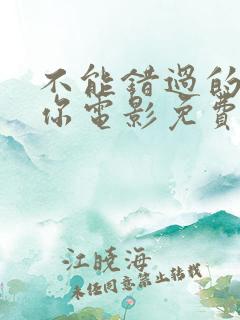 不能错过的
你电影免費
江晓海
未经同意禁止转载